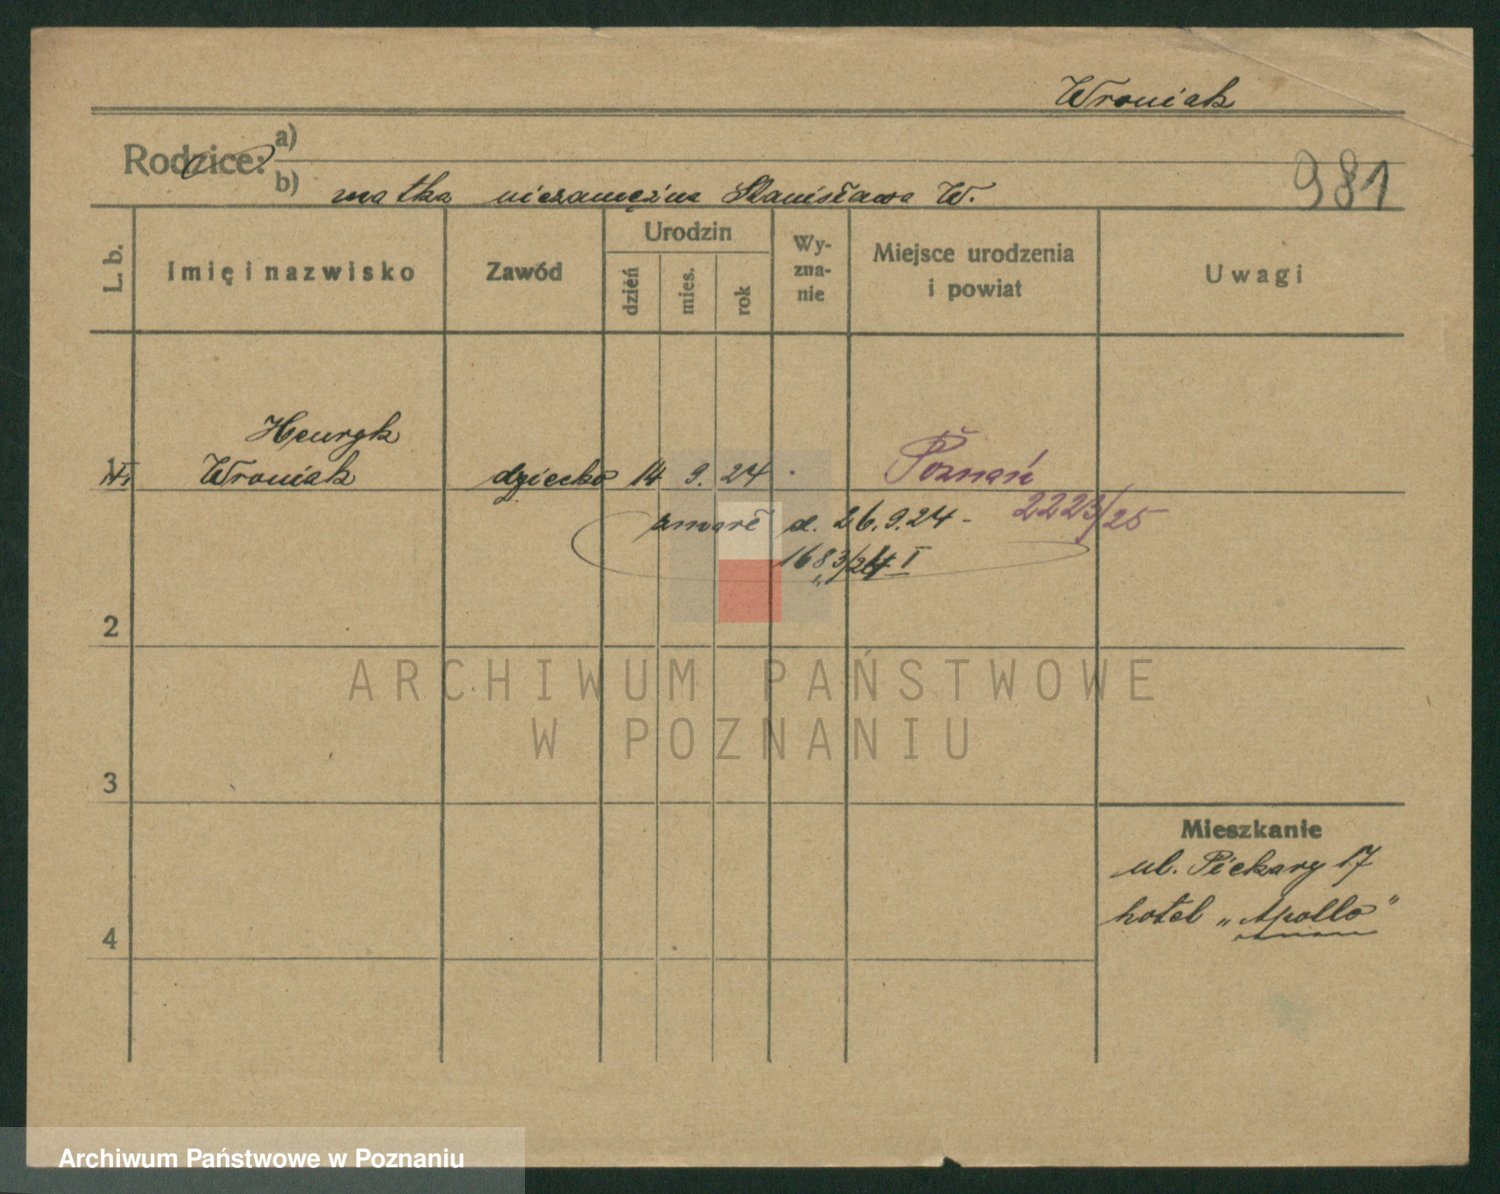 Wroniak
Rodzice: a)
b) matka niezamężna Stanisława W.
981
L. b.
Imię i nazwisko
Zawód
Urodzin
dzień
mies.
rok
Wy-
zna-
nie
Miejsce urodzenia
i powiat
Uwagi
Henryk
1 Wroniak dziecko 14 9. 24 Poznań
2223/25
zmarł d. 26.9.24 -
1683/24 I
2
ARCHIWUM PAŃSTWOWE
W POZNANIU
3
Mieszkanie
ul. Piekary 17
hotel „Apollo"
4
Archiwum Państwowe w Poznaniu